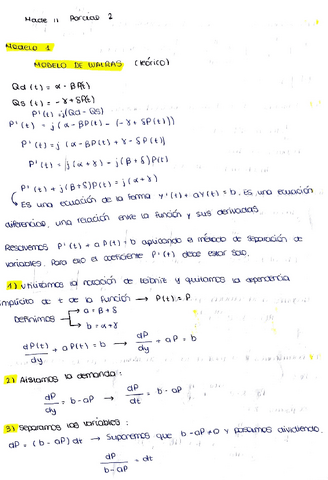 Mate II Parcial 2
MODELO 1
MODELO DE WALRAS (teórico)
Qd(t) = α - βP(t)
Qs(t) = -γ + δP(t)
P'(t) = j(Qd - Qs)
P'(t) = j(α - βP(t) - (-γ + δP(t)))
P'(t) = j(α - βP(t) + γ - δP(t))
P'(t) = j(α + γ) - j(β + δ)P(t)
P'(t) + j(β+δ)P(t) = j(α+γ)
Es una ecuación de la forma y'(t) + ay(t) = b. Es una ecuación
diferencial, una relación entre la función y sus derivadas.
Resolvemos P'(t) + aP(t) = b aplicando el método de separación de
variables. Para eso el coeficiente P'(t) debe estar solo.
1) Utilizamos la notación de Leibniz y quitamos la dependencia
implícita de t de la función → P(t) = P.
Definimos → a = β + δ
→ b = α + γ
dP(t)/dy + aP(t) = b → dP/dy + aP = b
2) Aislamos la demanda:
dP/dy = b - aP → dP/dt = b - aP
3) Separamos las variables:
dP = (b - aP) dt → Suponemos que b - aP ≠ 0 y pasamos dividiendo.
dP/b - aP = dt